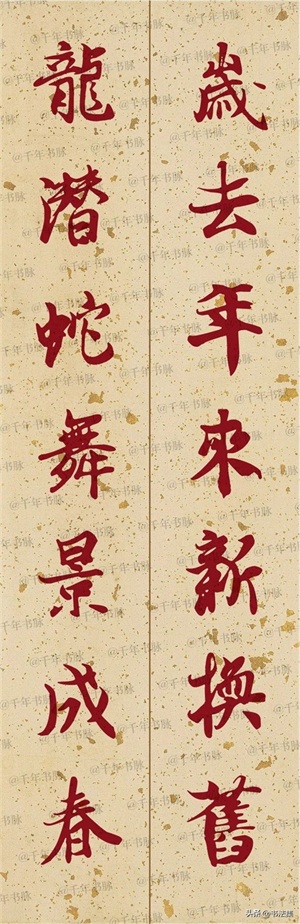 歲去年來新換舊
龍潛蛇舞景成春
@千年书脉
头条@书法屋